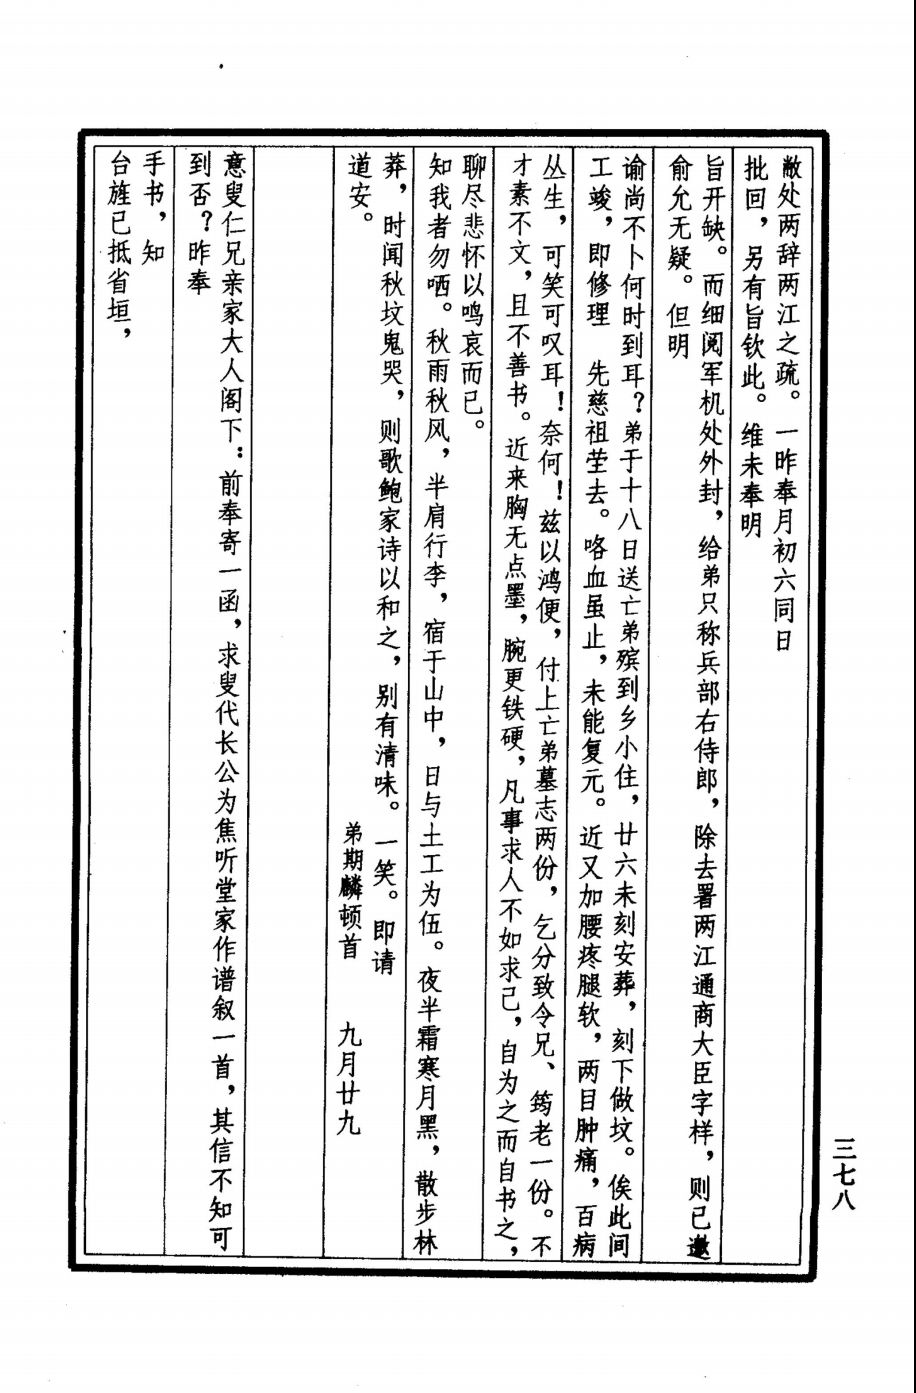 敝处两辞两江之疏。一昨奉月初六同日
批回，另有旨钦此。维未奉明
旨开缺。而细阅军机处外封，给弟只称兵部右侍郎，除去署两江通商大臣字样，则已邀
俞允无疑。但明
谕尚不卜何时到耳？弟于十八日送亡弟殡到乡小住，廿六未刻安葬，刻下做坟。俟此间
工竣，即修理　先慈祖茔去。咯血虽止，未能复元。近又加腰疼腿软，两目肿痛，百病
丛生，可笑可叹耳！奈何！兹以鸿便，付上亡弟墓志两份，乞分致令兄、筠老一份。不
才素不文，且不善书。近来胸无点墨，腕更铁硬，凡事求人不如求己，自为之而自书之，
聊尽悲怀以鸣哀而已。
知我者勿哂。秋雨秋风，半肩行李，宿于山中，日与土工为伍。夜半霜寒月黑，散步林
莽，时闻秋坟鬼哭，则歌鲍家诗以和之，别有清味。一笑。即请
道安。
弟期麟顿首　九月廿九
意叟仁兄亲家大人阁下：前奉寄一函，求叟代长公为焦听堂家作谱叙一首，其信不知可
到否？昨奉
手书，知
台旌已抵省垣，
三七八